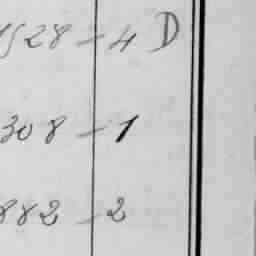 528 – 4 D
308 – 1
882 – 2